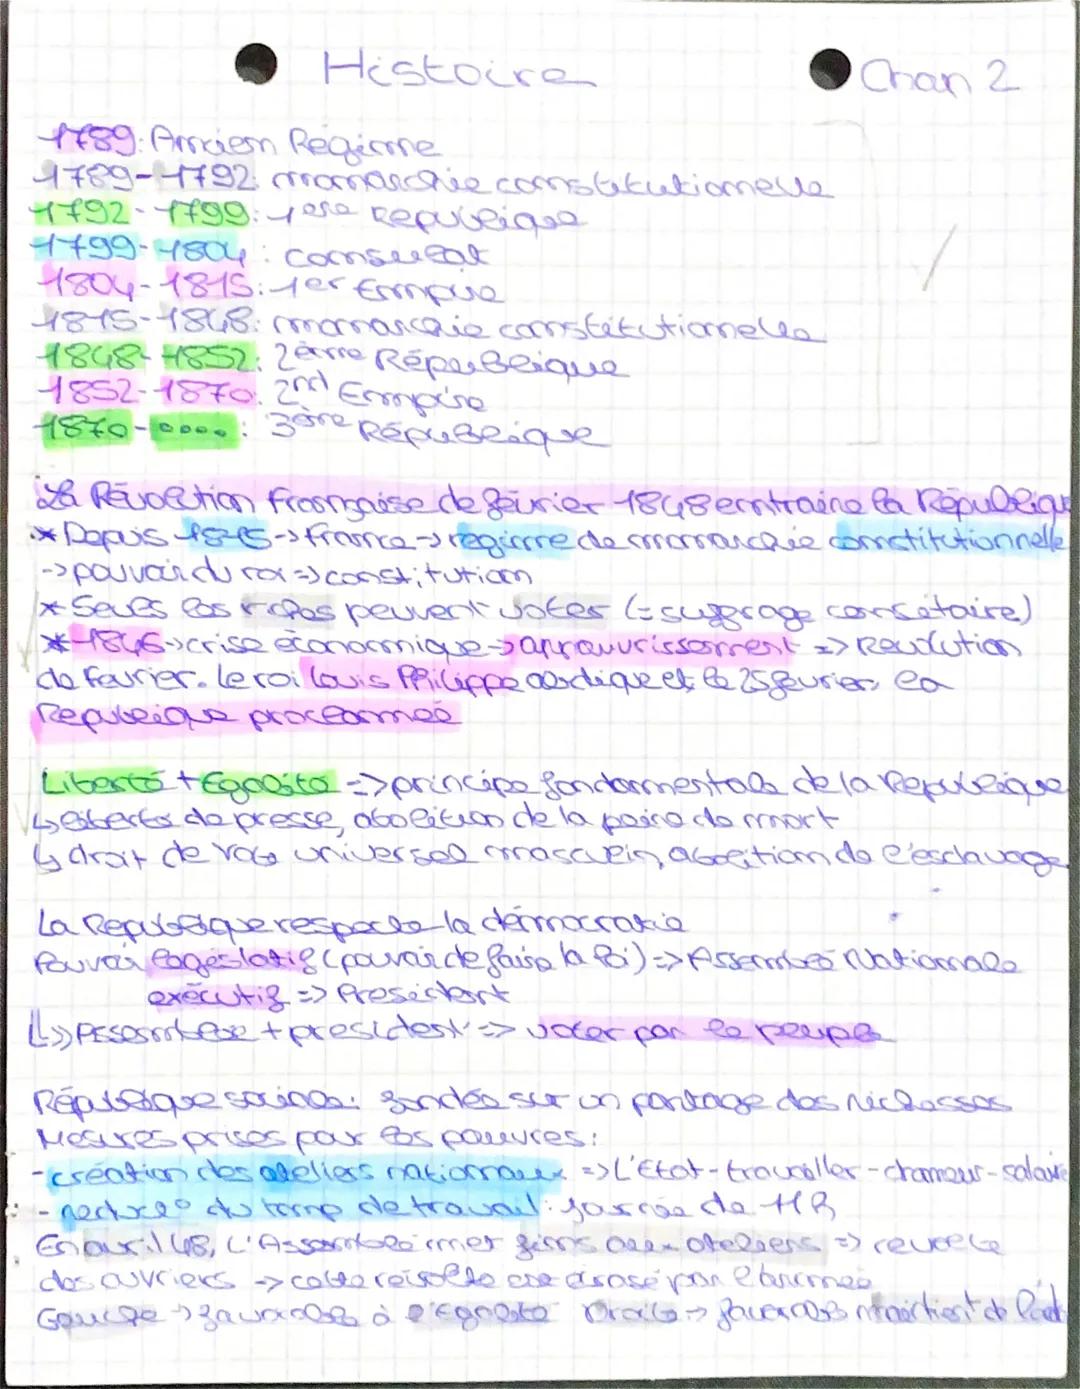 Histoire
Chap 2
1789: Ancien Régime
1789-1792: monarchie constitutionnelle
1792-1799: 1ere République
1799-1804: consulat
1804-1815: 1er Empire
1815-1848: monarchie constitutionnelle
1848-1852: 2ème République
1852-1870: 2nd Empire
1870-....: 3ème République
La Révolution Française de février 1848 entraine la République
* Depuis 1815 -> France -> regime de monarchie constitutionnelle
-> pouvoir du roi => constitution
* Seuls les riches peuvent voter (= suffrage censitaire)
* 1846 -> crise économique -> appauvrissement => Revolution
de fevrier. Le roi Louis Philippe abdique et le 25 fevrier, la
Republique proclamée
Liberté + Egalité => principe fondamentale de la Republique
↳ liberté de presse, abolition de la peine de mort
↳ droit de vote universel masculin, abolition de l'esclavage
La Republique respecte la démocratie
Pouvoir legislatif (pouvoir de faire la loi) => Assemblée Nationale
executif => President
↳ Assemblée + president => voter par le peuple
République sociale: fondée sur un partage des richesses
Mesures prises pour les pauvres:
- création des ateliers nationaux => L'Etat - travailler - chomeur - salaire
- reduc° du temp de travail: journée de 11h
En avril 48, L'Assemblée met fin aux ateliers => revolte
des ouvriers -> cette révolte est écrasé par l'armée
Gauche -> favorable à l'Egalité Droite -> favorable maintient de l'ordre